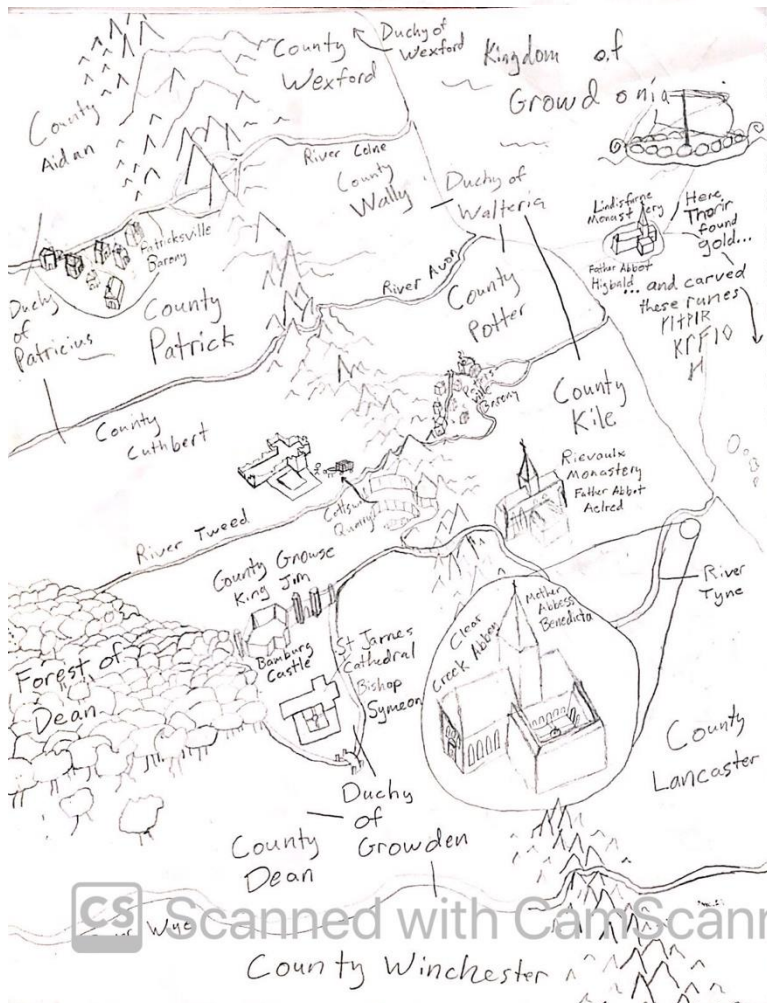 Duchy of
Wexford
County
Wexford
Kingdom of
Growdonia
County
Aidan
River Colne
County
Wally
Duchy of
Walteria
Lindisfarne
Monastery
Father Abbot
Higbald
Here
Thorir
found
gold...
... and carved
these runes
Patricksville
Barony
River Avon
Duchy
of
Patricius
County
Patrick
County
Potter
County
Cuthbert
Barony
County
Kile
Rievaulx
Monastery
Father Abbot
Aelred
Quarry
River Tweed
County Growse
King Jim
River
Tyne
Bamburg
Castle
St James
Cathedral
Bishop
Symeon
Clear
Creek Abbey
Mother
Abbess
Benedicta
Forest of
Dean
County
Lancaster
Duchy
of
Growden
County
Dean
CS Scanned with CamScanr
Wye
County Winchester